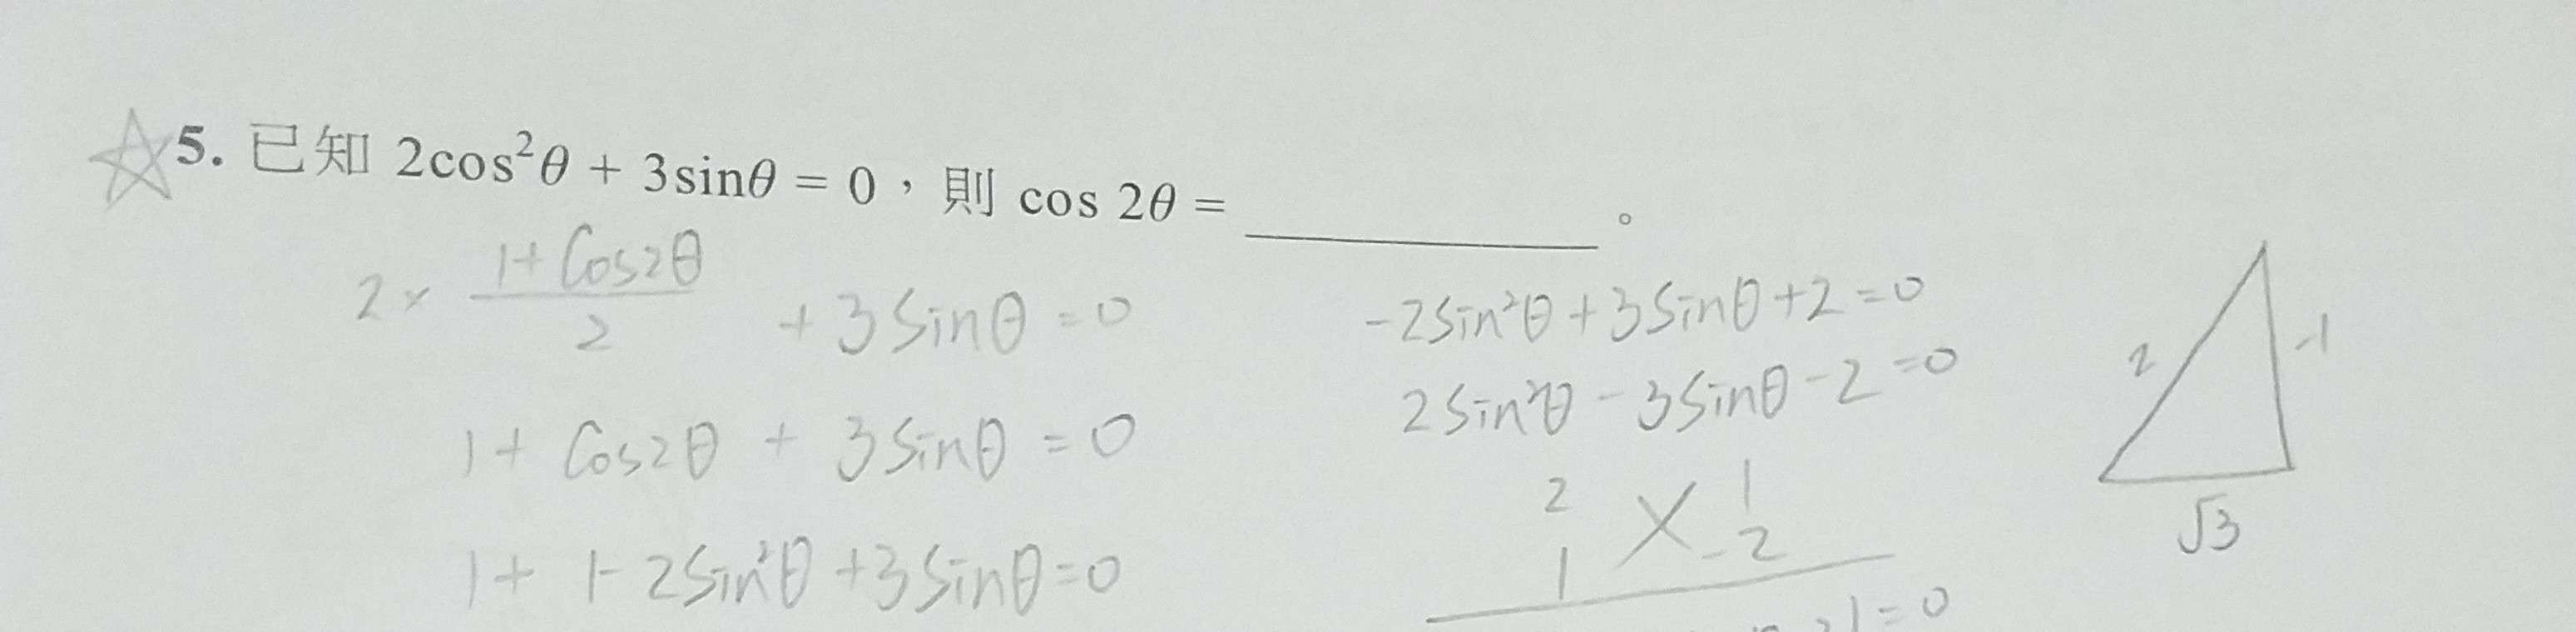 5. 已知 2cos²θ + 3sinθ = 0，則 cos 2θ = ________。
2 × (1 + Cos2θ)/2 + 3 Sinθ = 0
1 + Cos2θ + 3 Sinθ = 0
1 + 1 - 2Sin²θ + 3 Sinθ = 0
-2Sin²θ + 3Sinθ + 2 = 0
2Sin²θ - 3Sinθ - 2 = 0
2 1
1 -2
= 0
2 -1
√3